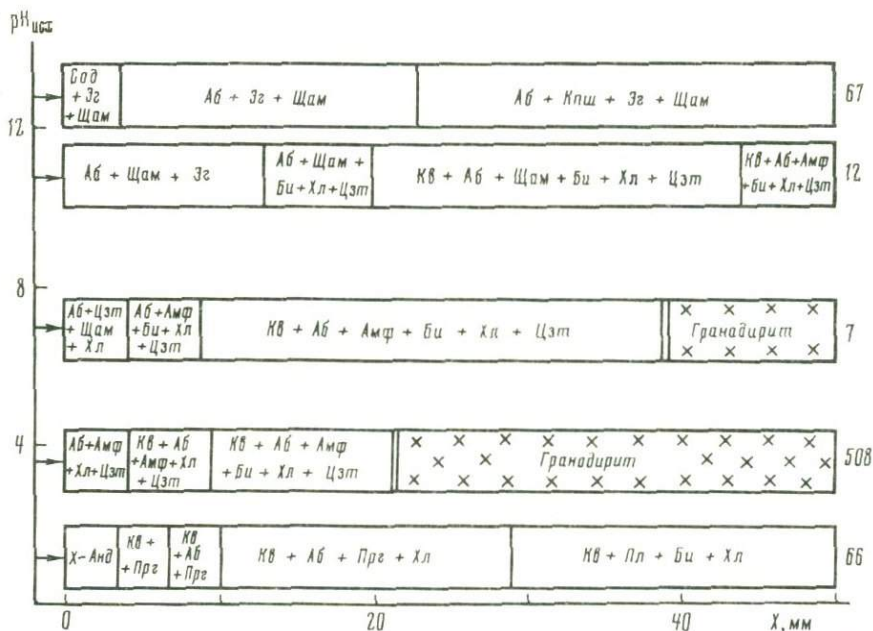 pH исх
Сод
+ Эг
+ Щам
Аб + Эг + Щам
Аб + Кпш + Эг + Щам
67
12
Аб + Щам + Эг
Аб + Щам +
Би + Хл + Цэт
Кв + Аб + Щам + Би + Хл + Цэт
Кв + Аб + Амф
+ Би + Хл + Цэт
12
8
Аб + Цэт
+ Щам
+ Хл
Аб + Амф
+ Би + Хл
+ Цэт
Кв + Аб + Амф + Би + Хл + Цэт
Гранадирит
7
4
Аб + Амф
+ Хл + Цэт
Кв + Аб
+ Амф + Хл
+ Цэт
Кв + Аб + Амф
+ Би + Хл + Цэт
Гранадирит
508
Х-Анд
Кв +
+ Прг
Кв
+ Аб
+ Прг
Кв + Аб + Прг + Хл
Кв + Пл + Би + Хл
66
0
20
40
X, мм